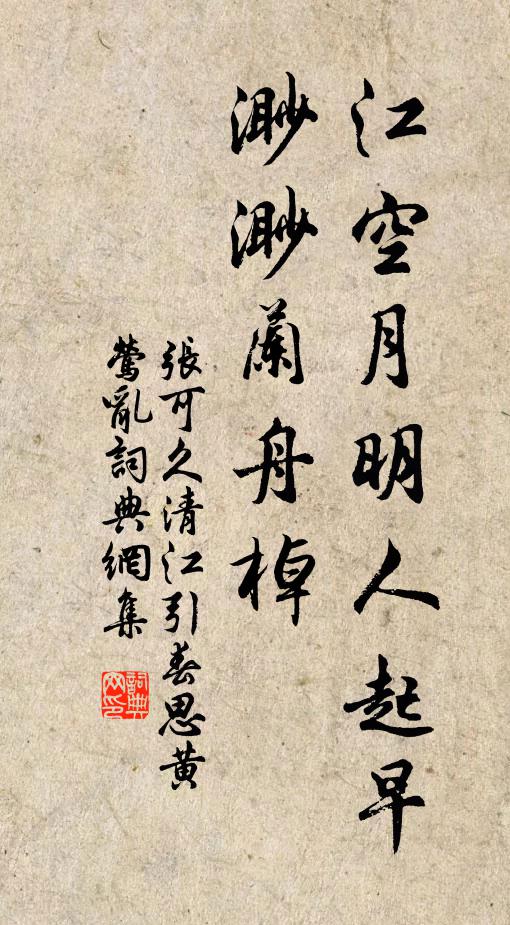 江空月明人起早
渺渺蘭舟棹
張可久清江引春思黃
鶯亂詞典網集
詞典網印